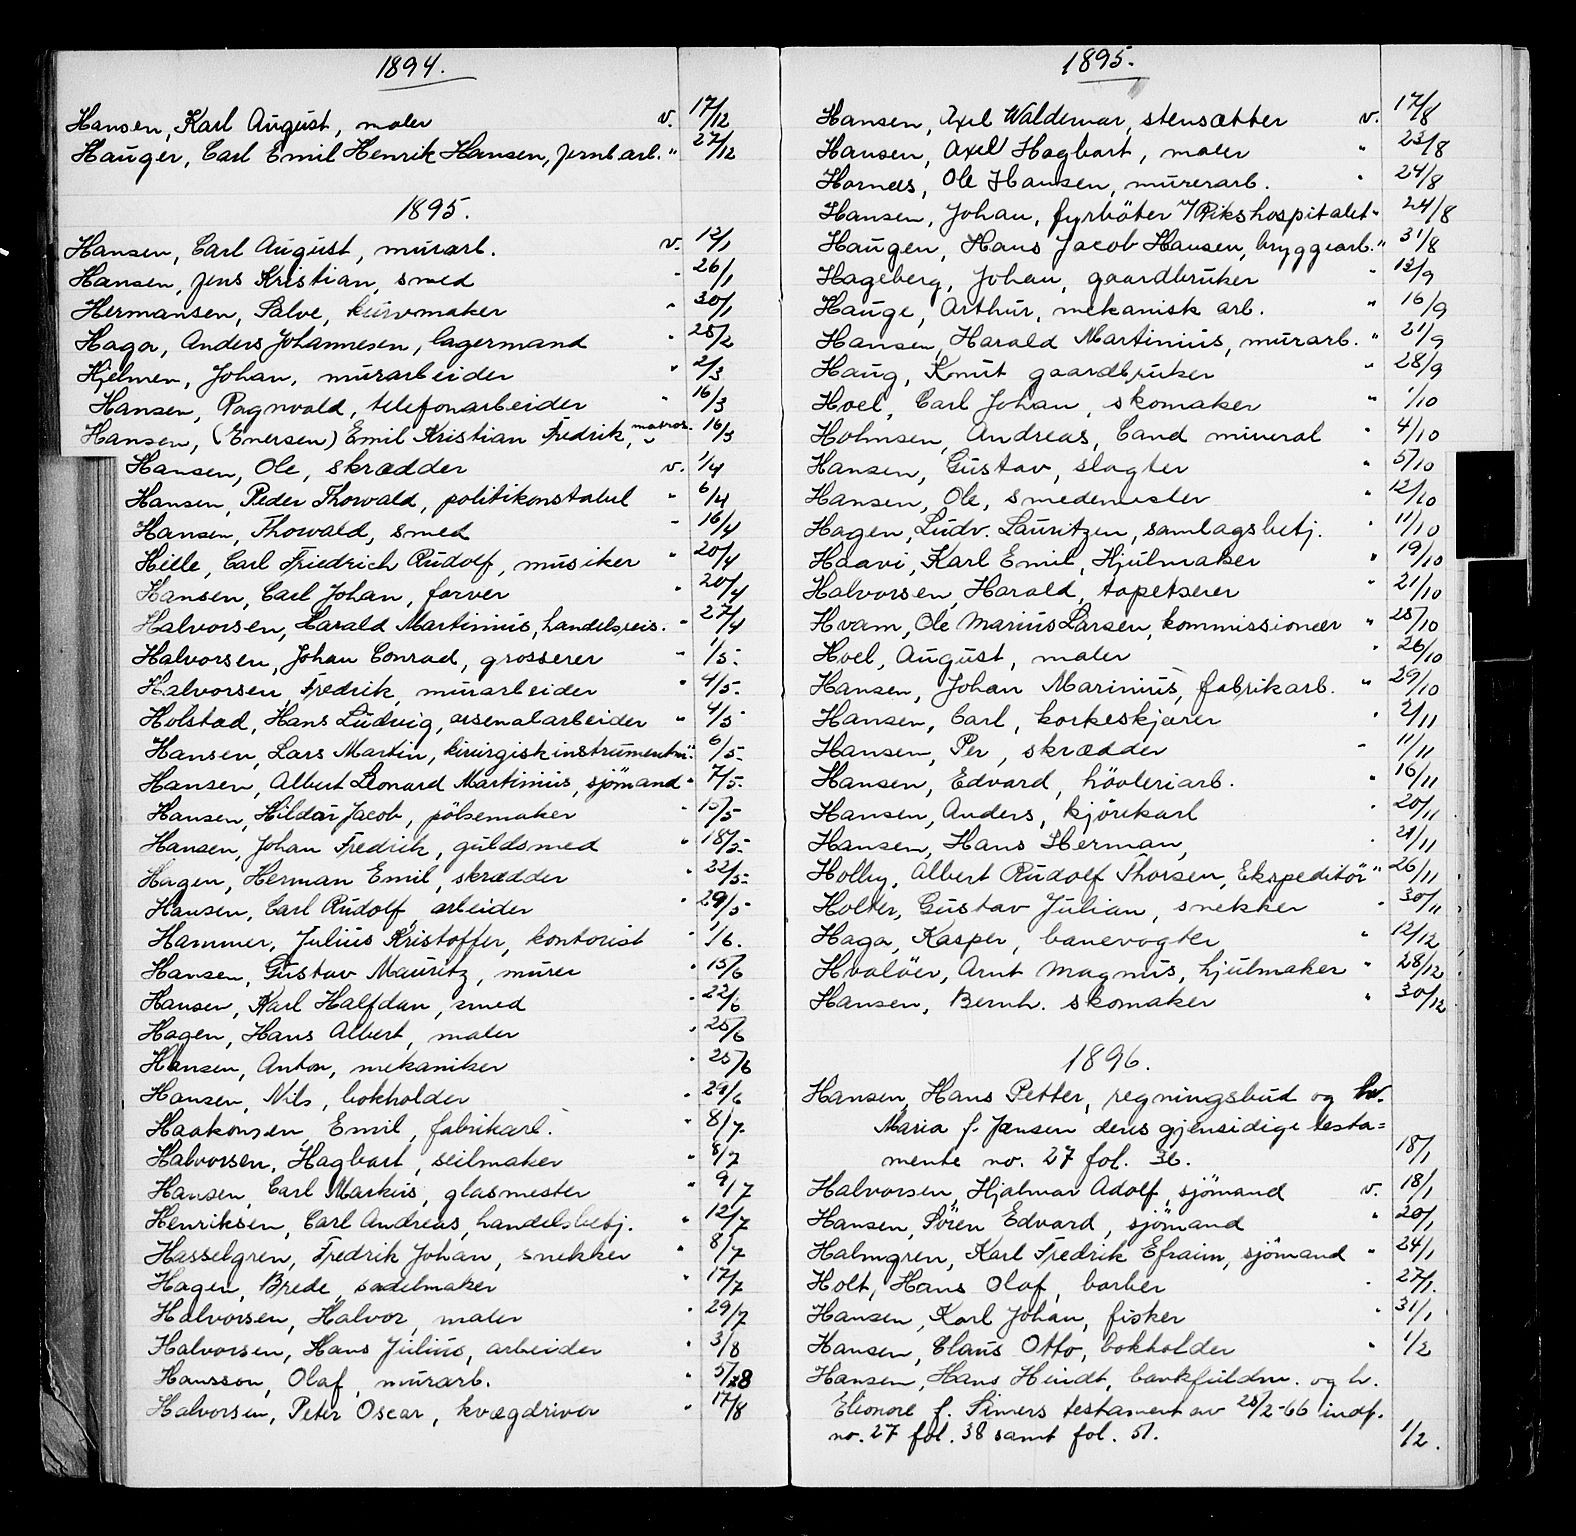 1894.
Hansen, Karl August, maler v. 17/12
Hauger, Carl Emil Henrik Hansen, jernb arb. " 27/12
1895.
Hansen, Carl August, murarb. v. 12/1
Hansen, Jens Kristian, smed " 26/1
Hermansen, Salve, kurvmaker " 30/1
Haga, Anders Johannesen, lagermand " 25/2
Hjelmen, Johan, murarbeider " 2/3
Hansen, Ragnvald, telefonarbeider " 16/3
Hansen, (Enersen) Emil Kristian Fredrik, matros. " 16/3
Hansen, Ole, skrædder v. 1/4
Hansen, Peder Thorvald, politikonstabel " 6/4
Hansen, Thorvald, smed " 16/4
Hille, Carl Friedrich Rudolf, musiker " 20/4
Hansen, Carl Johan, farver " 20/4
Halvorsen, Harald Martinius, handelsreis. " 27/4
Halvorsen, Johan Conrad, grosserer " 1/5.
Halvorsen Fredrik, murarbeider " 4/5.
Holstad, Hans Ludvig, arsenalarbeider " 4/5
Hansen, Lars Martin, kirurgisk instrumentm. " 6/5.
Hansen, Albert Leonard Martinius, sjömand " 7/5.
Hansen, Hildar Jacob, pölsemaker " 15/5
Hansen, Johan Fredrik, guldsmed " 18/5.
Hagen, Herman Emil, skrædder " 22/5.
Hansen, Carl Rudolf, arbeider " 29/5
Hammer, Julius Kristoffer, kontorist " 1/6.
Hansen, Gustav Mauritz, murer " 15/6
Hansen, Karl Halfdan, smed " 22/6
Hagen, Hans Albert, maler " 25/6
Hansen, Anton, mekaniker " 25/6
Hansen, Nils, bokholder " 29/6
Haakonsen, Emil, fabrikarb. " 8/7.
Halvorsen, Hagbart, seilmaker " 8/7
Hansen, Carl Markus, glasmester " 9/7
Henriksen, Carl Andreas, handelsbetj. " 12/7
Hasselgren, Fredrik Johan, snekker " 8/7
Hagen, Brede, sadelmaker " 17/7
Halvorsen, Halvor, maler " 29/7
Halvorsen, Hans Julius, arbeider " 3/8
Hansson, Olaf, murarb. " 5/8
Halvorsen, Peter Oscar, kvægdriver " 17/8
1895.
Hansen, Axel Waldemar, stensætter v. 17/8
Hansen, Axel Hagbart, maler " 23/8
Hornæs, Ole Hansen, murerarb. " 24/8
Hansen, Johan, fyrböter v/Rikshospitalet " 24/8
Haugen, Hans Jacob Hansen, bryggearb. " 31/8
Hageberg, Johan, gaardbruker " 12/9
Hauge, Arthur, mekanisk arb. " 16/9
Hansen, Harald Martinius, murarb. " 21/9
Haug, Knut gaardbruker " 28/9
Hoel, Carl Johan, skomaker " 1/10
Holmsen, Andreas, Cand mineral " 4/10
Hansen, Gustav, slagter " 5/10
Hansen, Ole, smedemester " 12/10
Hagen, Ludv. Lauritzen, samlagsbetj. " 11/10
Haavi, Karl Emil, Hjulmaker " 19/10
Halvorsen, Harald, tapetserer " 21/10
Hvam, Ole Marius Larsen, kommissionær " 25/10
Hoel, August, maler " 26/10
Hansen, Johan Marinius, fabrikarb. " 29/10
Hansen, Carl, korkeskjærer " 2/11
Hansen, Per, skrædder " 11/11
Hansen, Edvard, hövleriarb. " 16/11
Hansen, Anders, kjörekarl " 20/11
Hansen, Hans Herman, " 21/11
Holby, Albert Rudolf Thorsen, Ekspeditör " 26/11
Holter, Gustav Julian, snekker " 30/11
Haga, Kasper, banevogter " 12/12
Hvalöer, Arnt Magnus, hjulmaker " 28/12
Hansen, Bernh. skomaker " 30/12
1896.
Hansen, Hans Petter, regningsbud og hv.
Maria f. Jensen deres gjensidige testa=
mente no. 27 fol. 36. 18/1
Halvorsen, Hjalmar Adolf, sjömand v. 18/1
Hansen, Sören Edvard, sjömand " 20/1
Halmgren, Karl Fredrik Efraim, sjömand " 24/1
Holt, Hans Olaf, barber " 27/1.
Hansen, Karl Johan, fisker " 31/1
Hansen, Claus Otto, bokholder " 1/2
Hansen, Hans Heindt, bankfuldm. og h.
Eleonore f. Simers testament av 28/2-66 indf.
no. 27 fol. 38 samt fol. 51. 1/2.